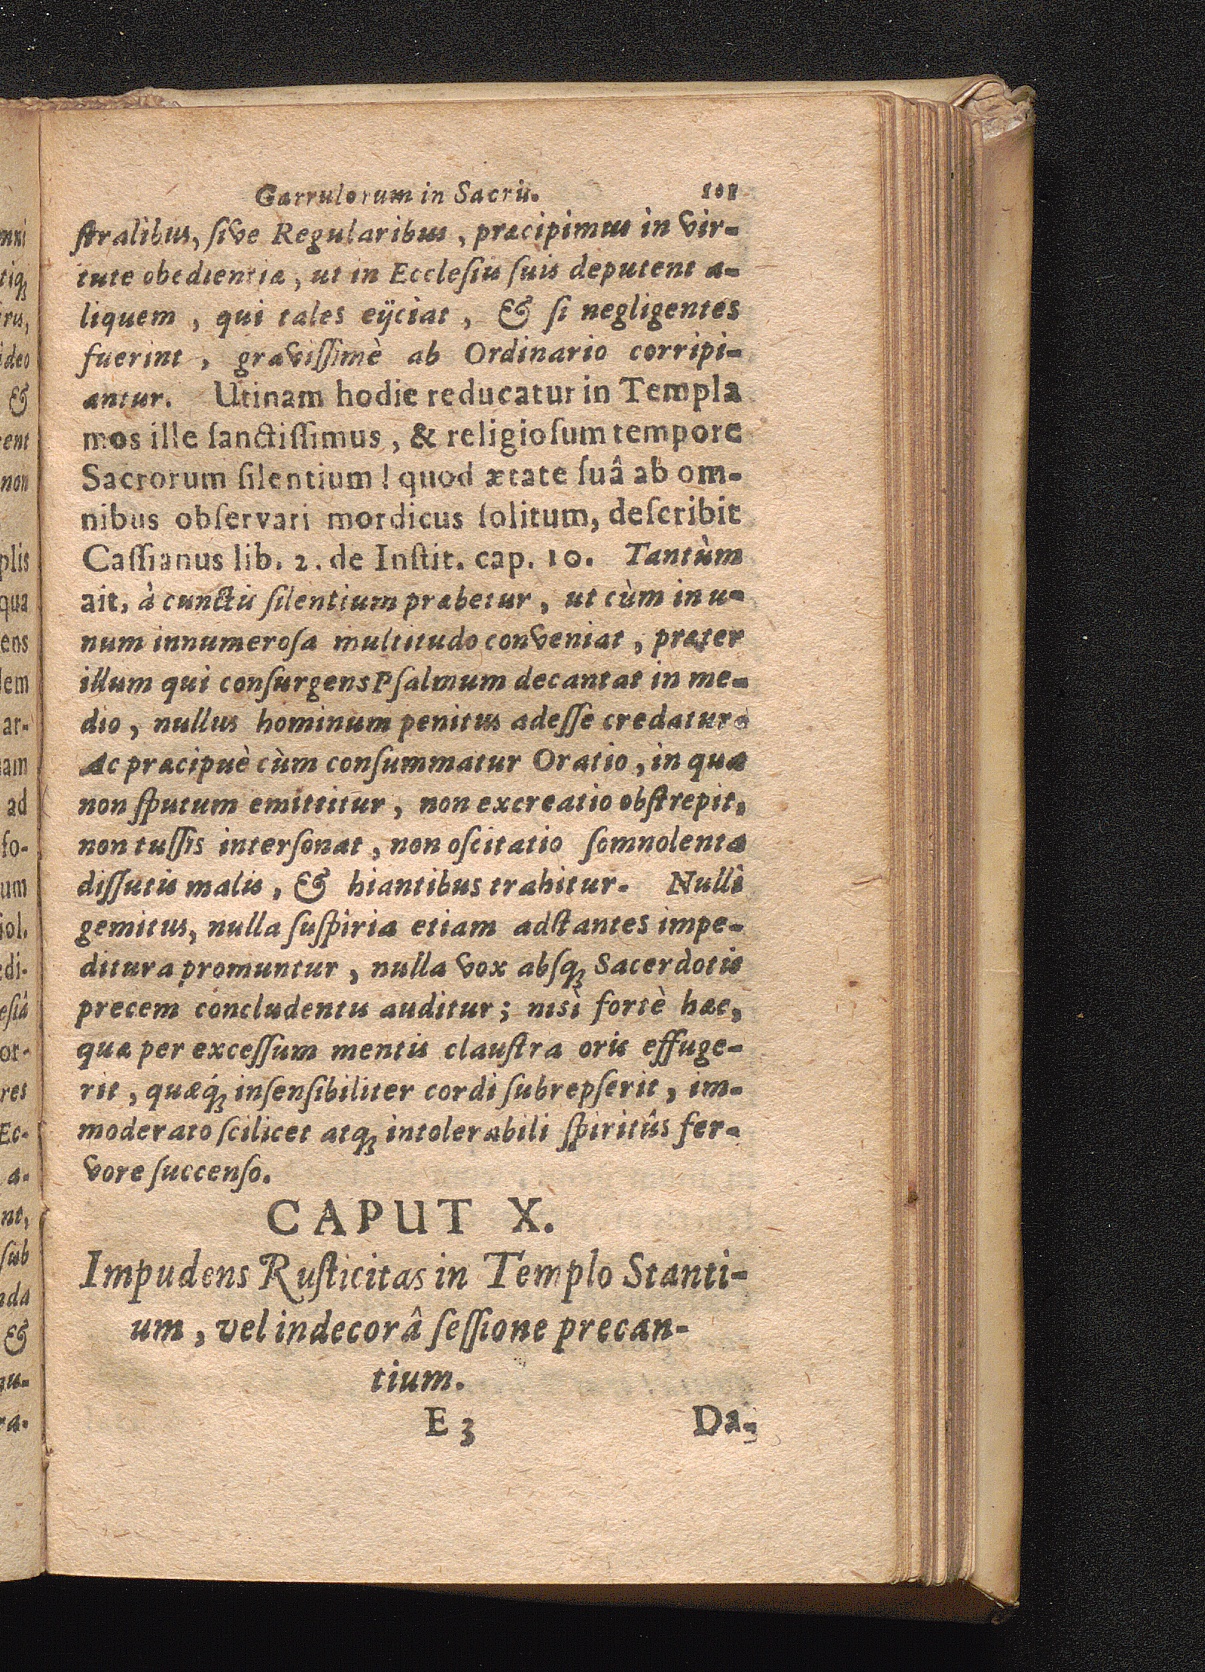 Garrulorum in Sacris. 101
ſtralibus, ſive Regularibus, præcipimus in vir-
tute obedientiæ, ut in Eccleſiis ſuis deputent a-
liquem, qui tales eijciat, & ſi negligentes
fuerint, graviſſimè ab Ordinario corripi-
antur. Utinam hodie reducatur in Templa
mos ille ſanctiſſimus, & religioſum tempore
Sacrorum ſilentium! quod ætate ſuâ ab om-
nibus obſervari mordicus ſolitum, deſcribit
Caſſianus lib. 2. de Inſtit. cap. 10. Tantùm
ait, à cunctis ſilentium præbetur, ut cùm in u-
num innumeroſa multitudo conveniat, præter
illum qui conſurgens Pſalmum decantat in me-
dio, nullus hominum penitus adeſſe credatur.
Ac præcipuè cùm conſummatur Oratio, in qua
non ſputum emittitur, non excreatio obſtrepit,
non tuſſis interſonat, non oſcitatio ſomnolenta
diſſutis malis, & hiantibus trahitur. Nulli
gemitus, nulla ſuſpiria etiam adſtantes impe-
ditura promuntur, nulla vox abſq; Sacerdotis
precem concludentis auditur; nisi fortè hæc,
quæ per exceſſum mentis clauſtra oris effuge-
rit, quæq́; inſenſibiliter cordi ſubrepſerit, im-
moderato ſcilicet atq; intolerabili ſpiritûs fer-
vore ſuccenſo.
CAPUT X.
Impudens Ruſticitas in Templo Stanti-
um, vel indecorâ ſeſſione precan-
tium.
E 3 Da-